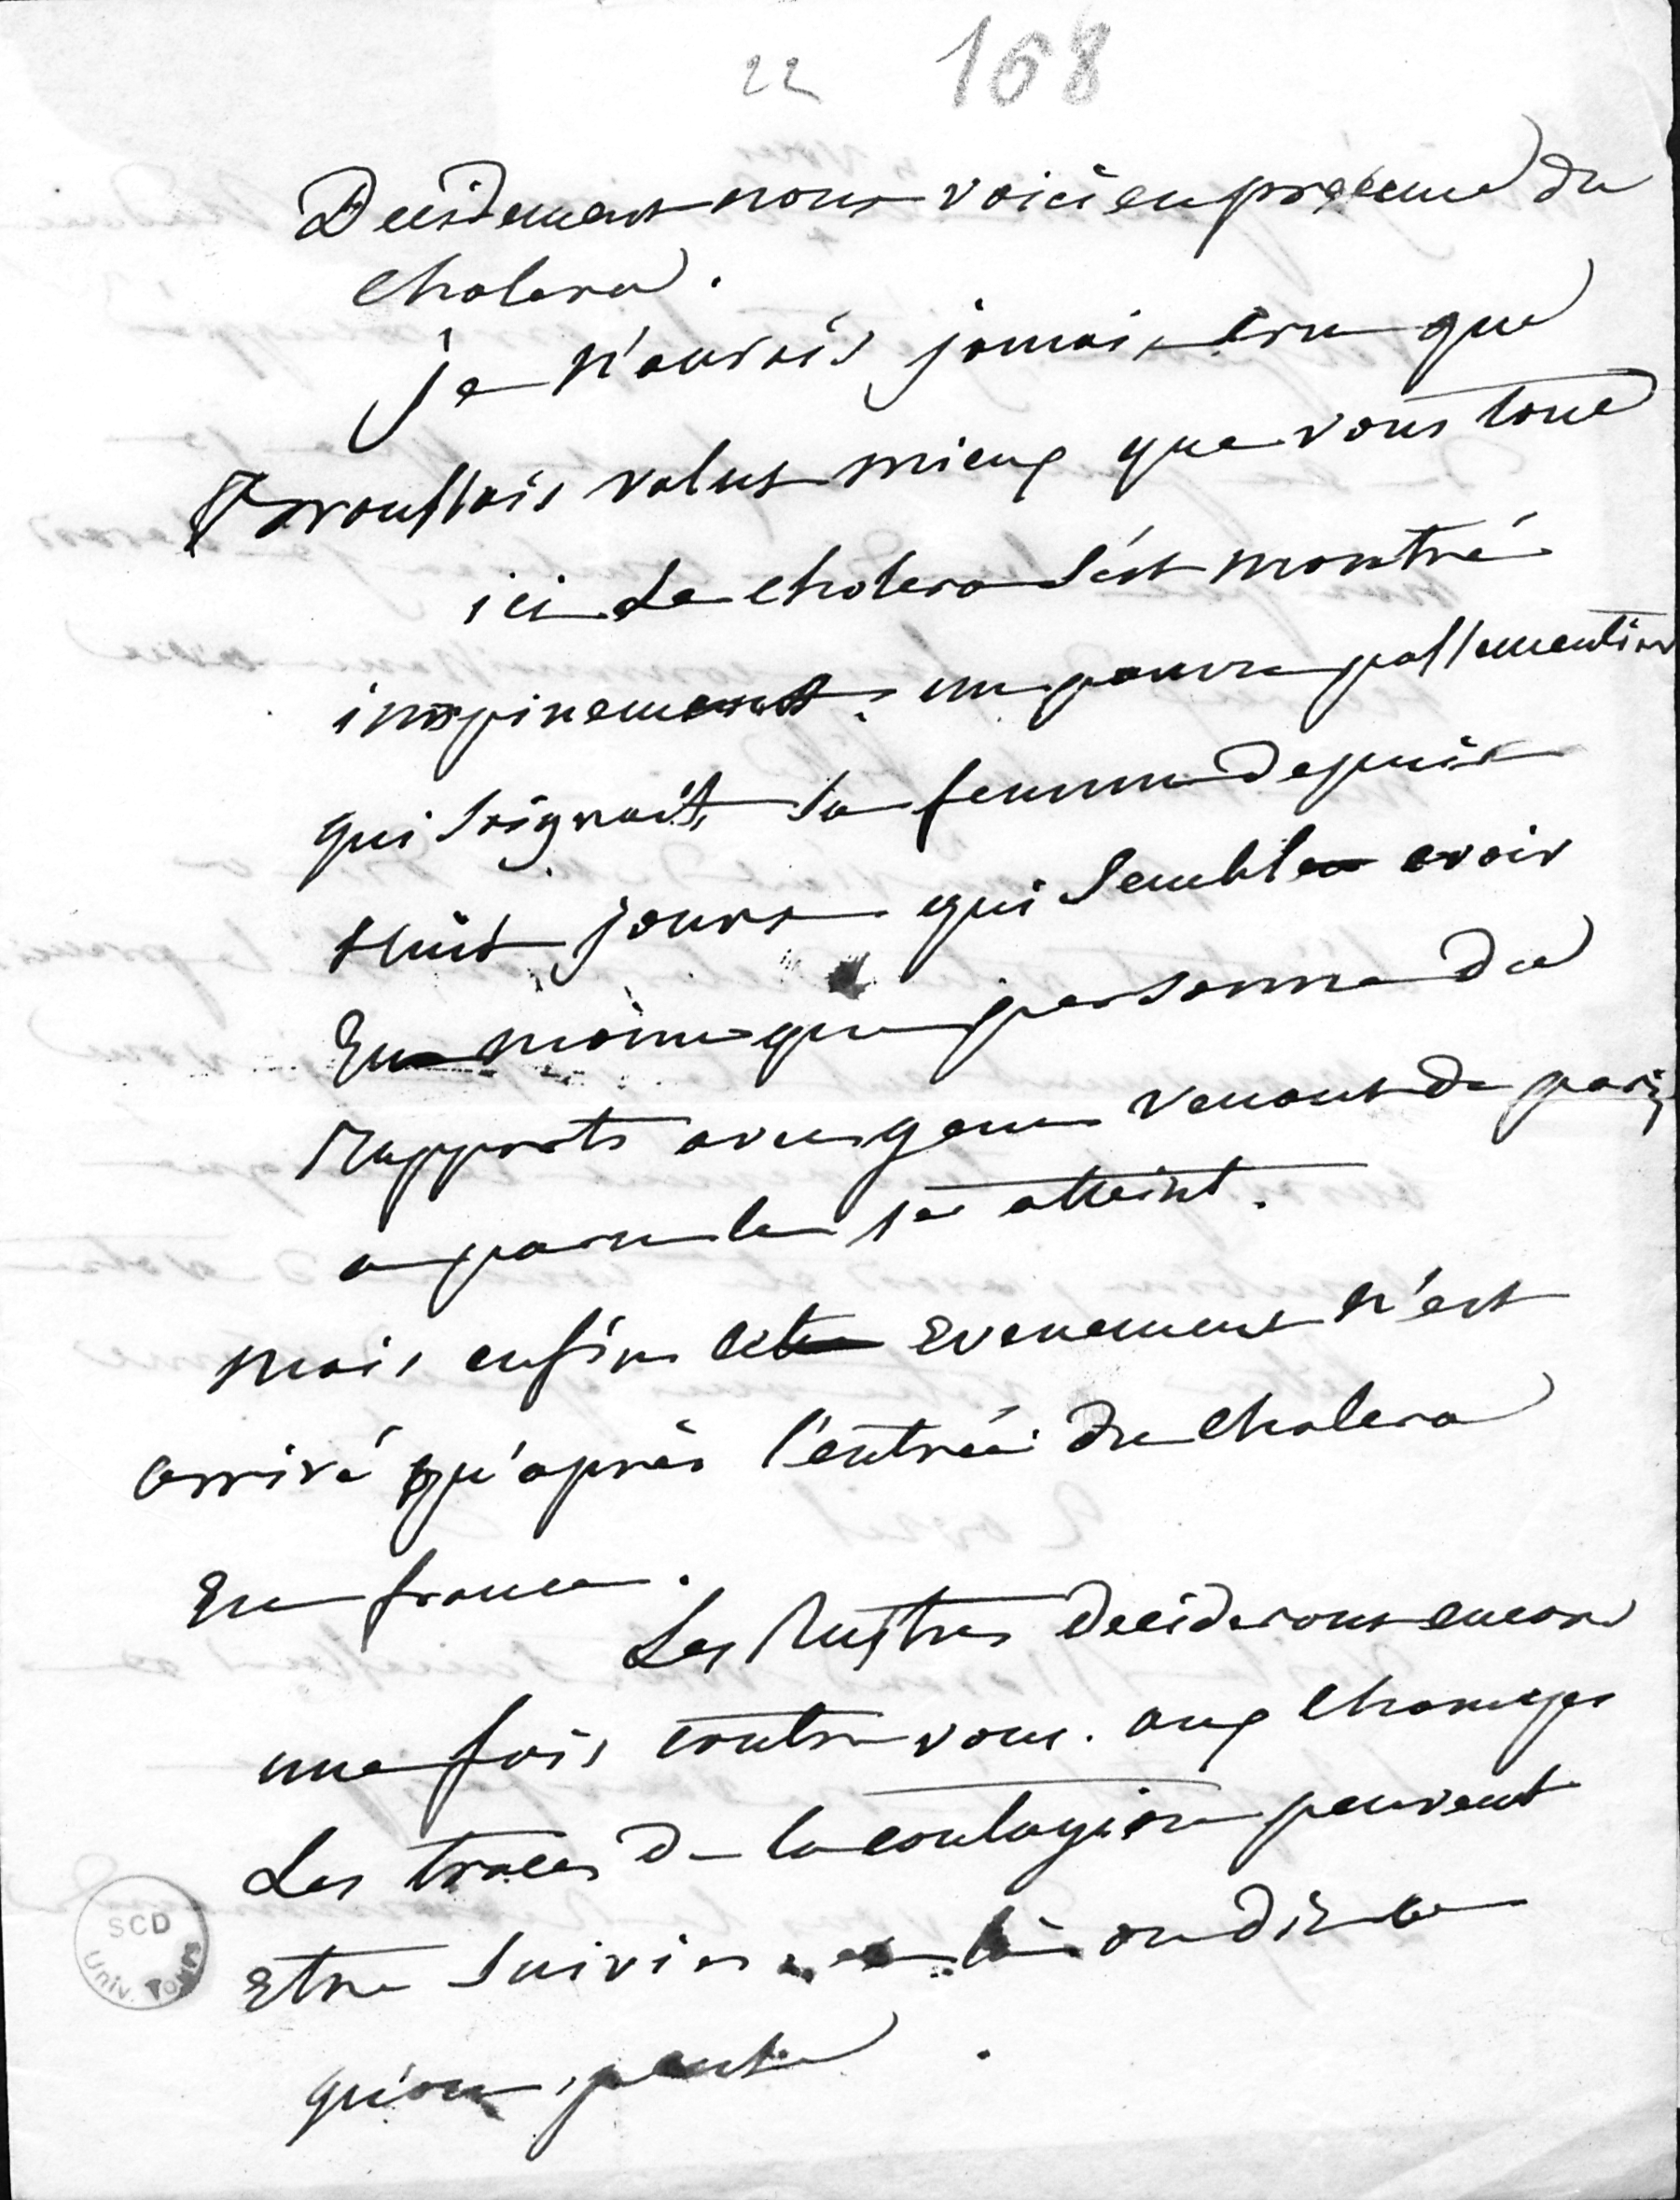 22 168
Decidement nous voici en presence du
cholera.
je n'aurois jamais cru que
Trousseau valut mieux que vous tous
ici Le cholera s'est montré
inopinement. un pauvre passementier
qui soignait sa femme depuis
huit jours qui semble avoir
Eu moins que personne de
Rapports avec gens venant de paris
a paru le 1er atteint.
mais enfin cet Evenement n'est
arrivé qu'après l'entrée du cholera
En france.
Les Rustres decideront encore
une fois contre vous. aux champs
Les traces de la contagion peuvent
Etre suivies là on dit ce
qu'on pense.
SCD
Univ. Tours